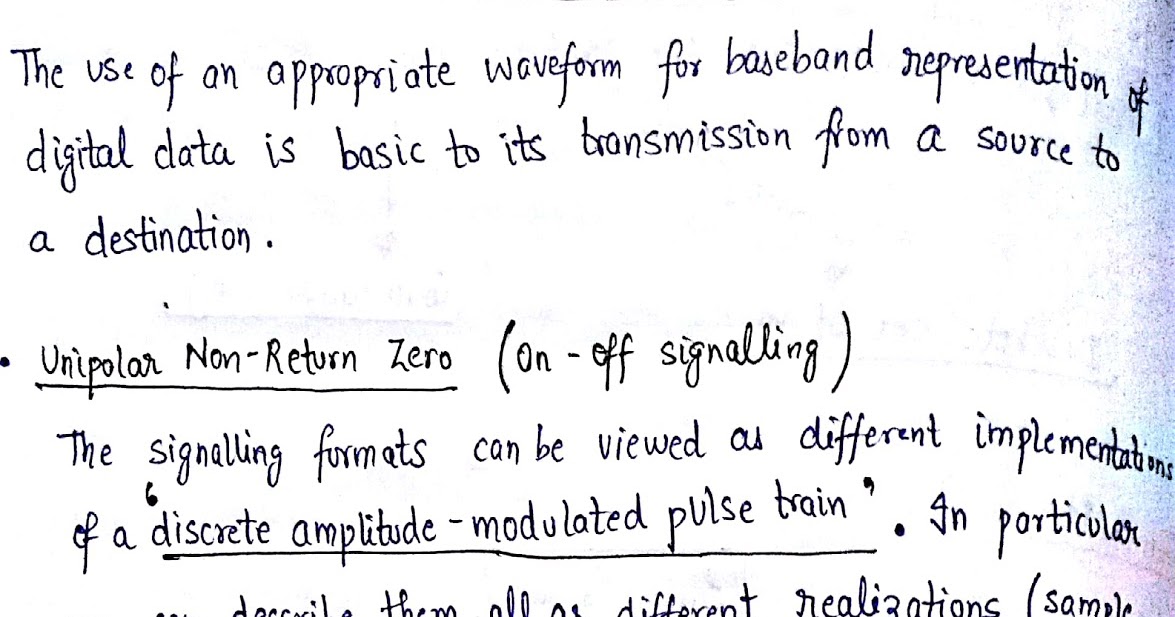 The use of an appropriate waveform for baseband representation of
digital data is basic to its transmission from a source to
a destination.
• Unipolar Non-Return Zero (on-off signalling)
The signalling formats can be viewed as different implementations
of a 'discrete amplitude-modulated pulse train'. In particular
describe them all as different realizations (sample